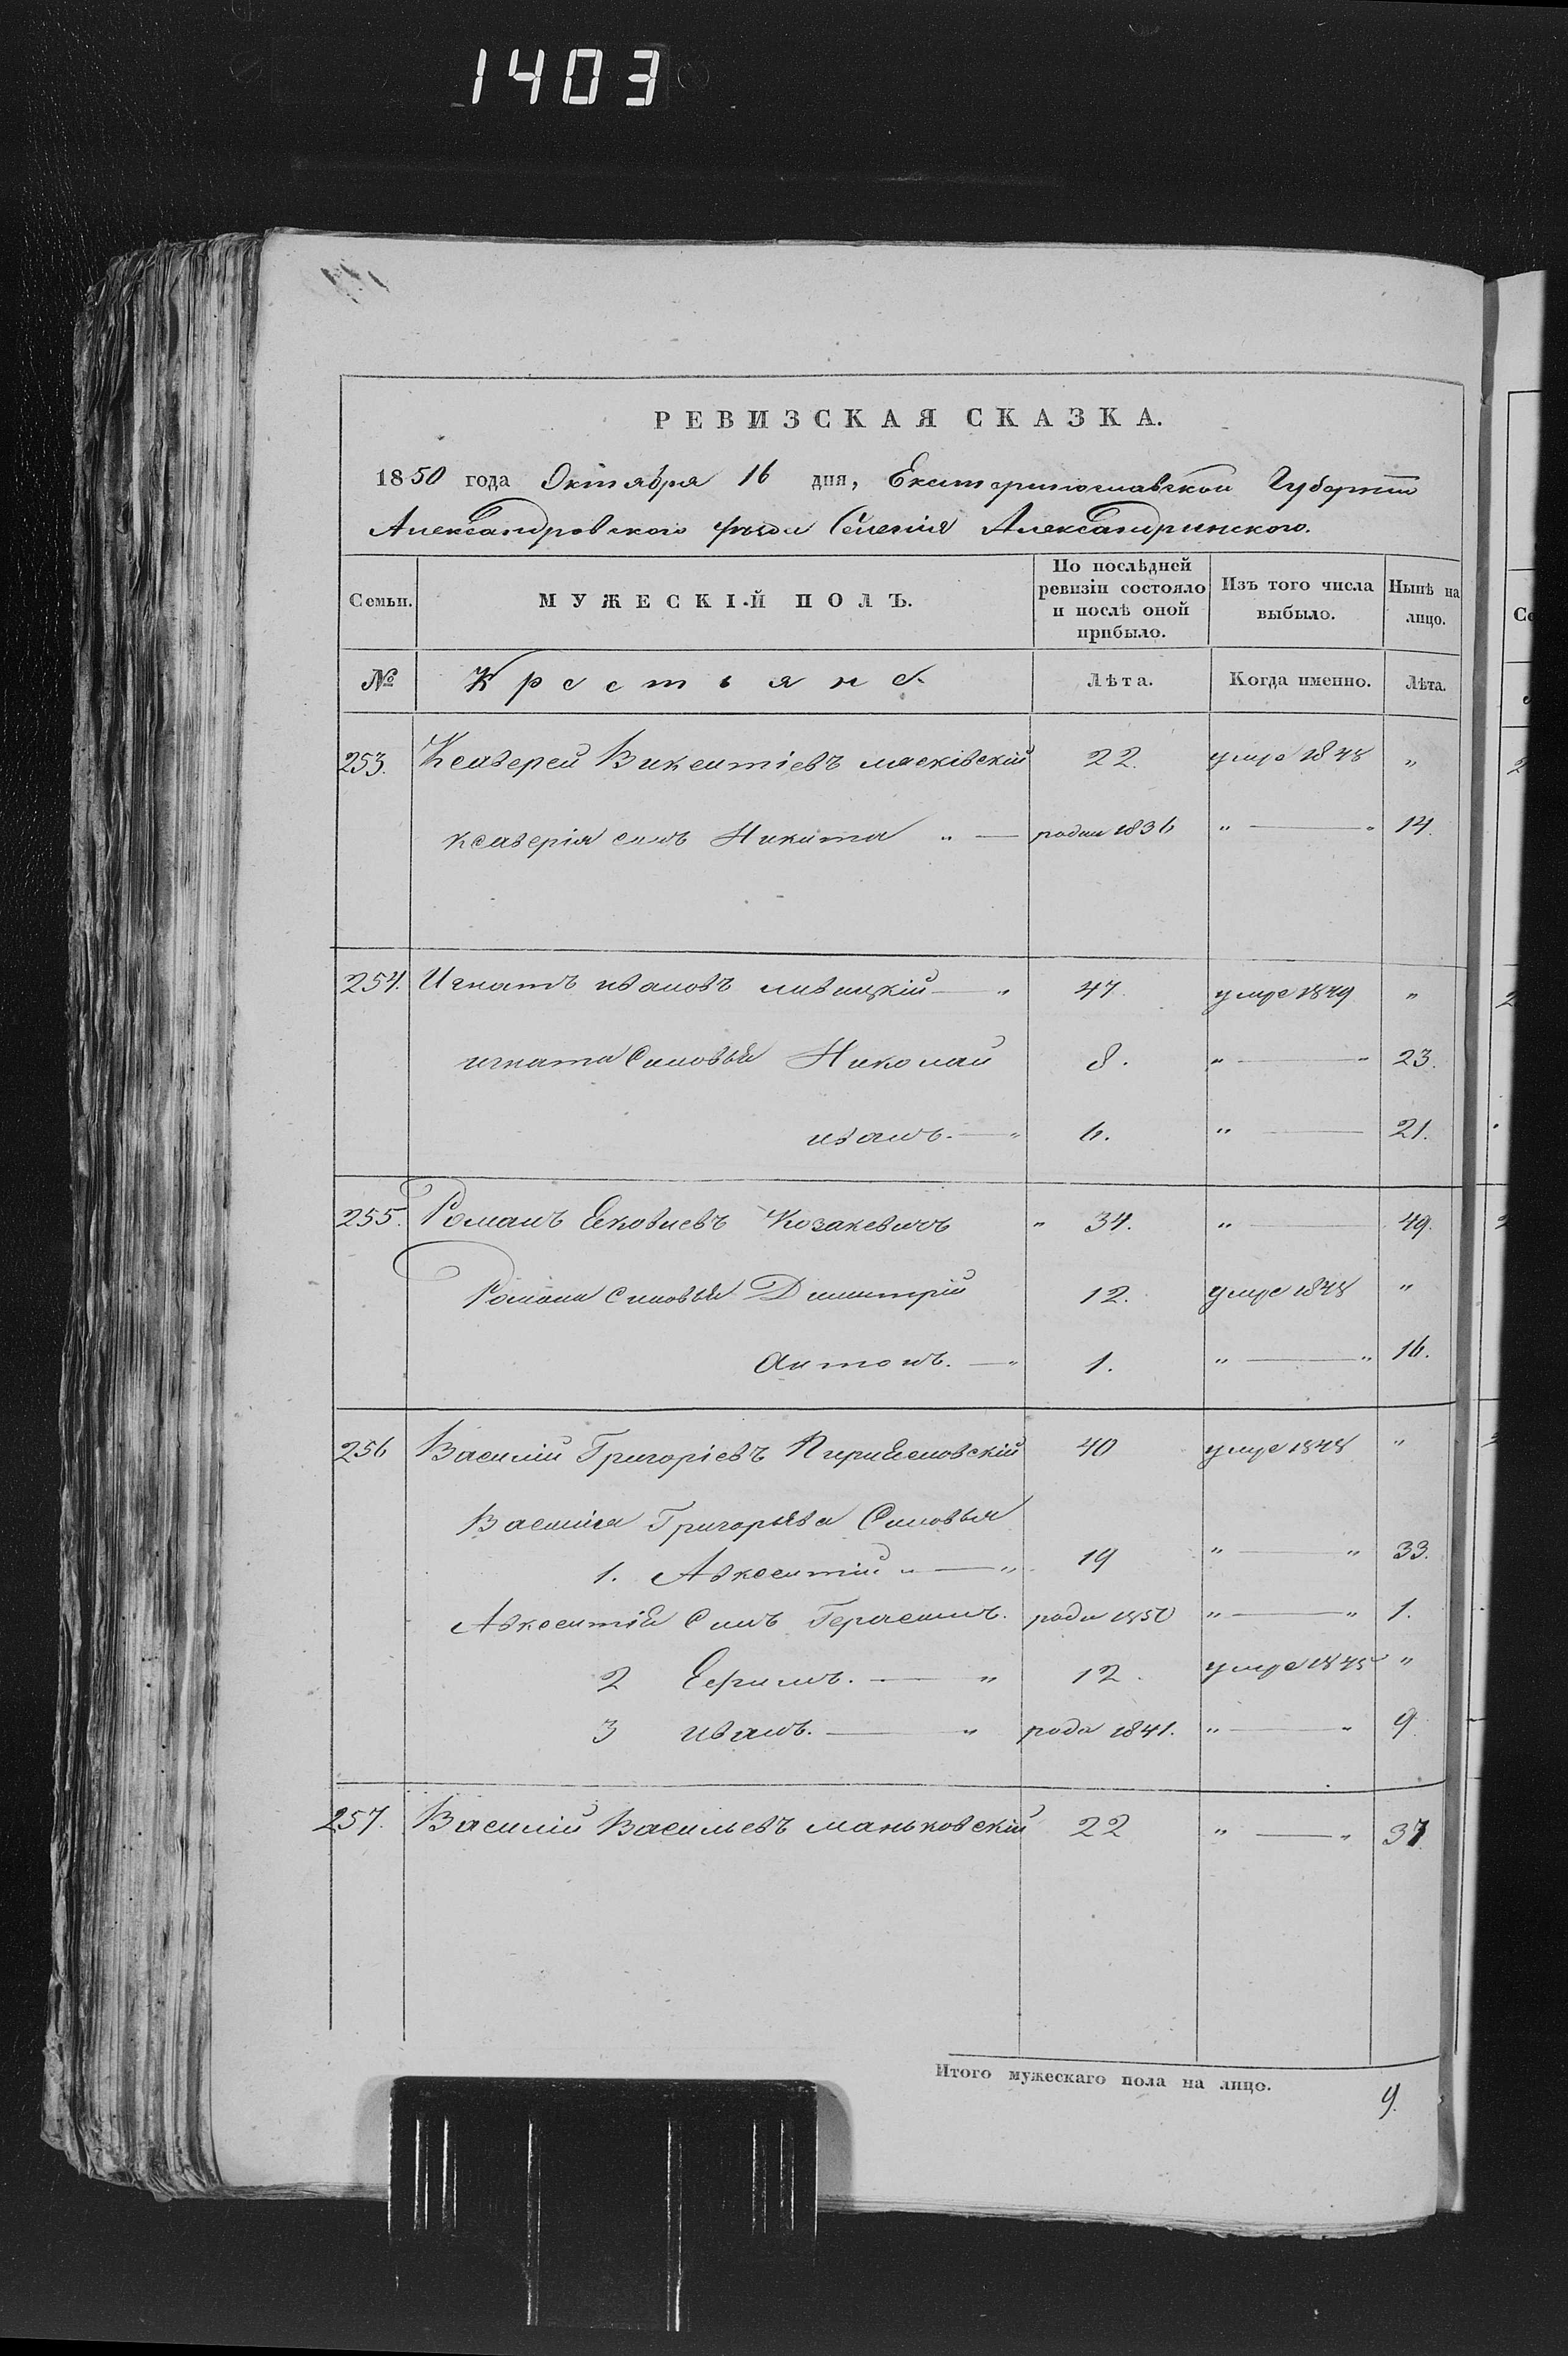 1403
РЕВИЗСКАЯ СКАЗКА.
1850 года Октября 16 дня, Екатеринославской Губернiи
Александровского уѣзда Селенiя Александринского.
Семьи. МУЖЕСКIЙ ПОЛЪ. По послѣдней ревизiи состояло и послѣ оной прибыло. Изъ того числа выбыло. Нынѣ на лицо.
№ Крестьяне Лѣта. Когда именно. Лѣта.
253. Ксаверей Викентiевъ 22. умре 1848 „
ксаверiя сынъ Никита „ — родил 1836 „ — „ 14.
254. Игнатъ ивановъ ливицкiй — „ 47. умре 1849 „
игната Сыновья Николай 8. „ — „ 23.
иванъ. — „ 6. „ — 21.
255. Романъ Яковлевъ Козакевичъ „ 34. „ — 49.
Романа сыновья Димитрiй 12. умре 1848 „
Антонъ. — „ 1. „ — „ 16.
256 Василiй Григорiевъ 40 умре 1848 „
Василiя Григорьева Сыновья
1. Авксентiй „ — „ 19 „ — „ 33.
Авксентiя Сынъ Герасимъ. роди 1850 „ — „ 1.
2 Ефимъ. — „ 12. умре 1845 „
3 иванъ. — „ роди 1841. „ — „ 9
257. Василiй Васильевъ маньковскiй 22 „ — „ 37.
Итого мужескаго пола на лицо. 9.